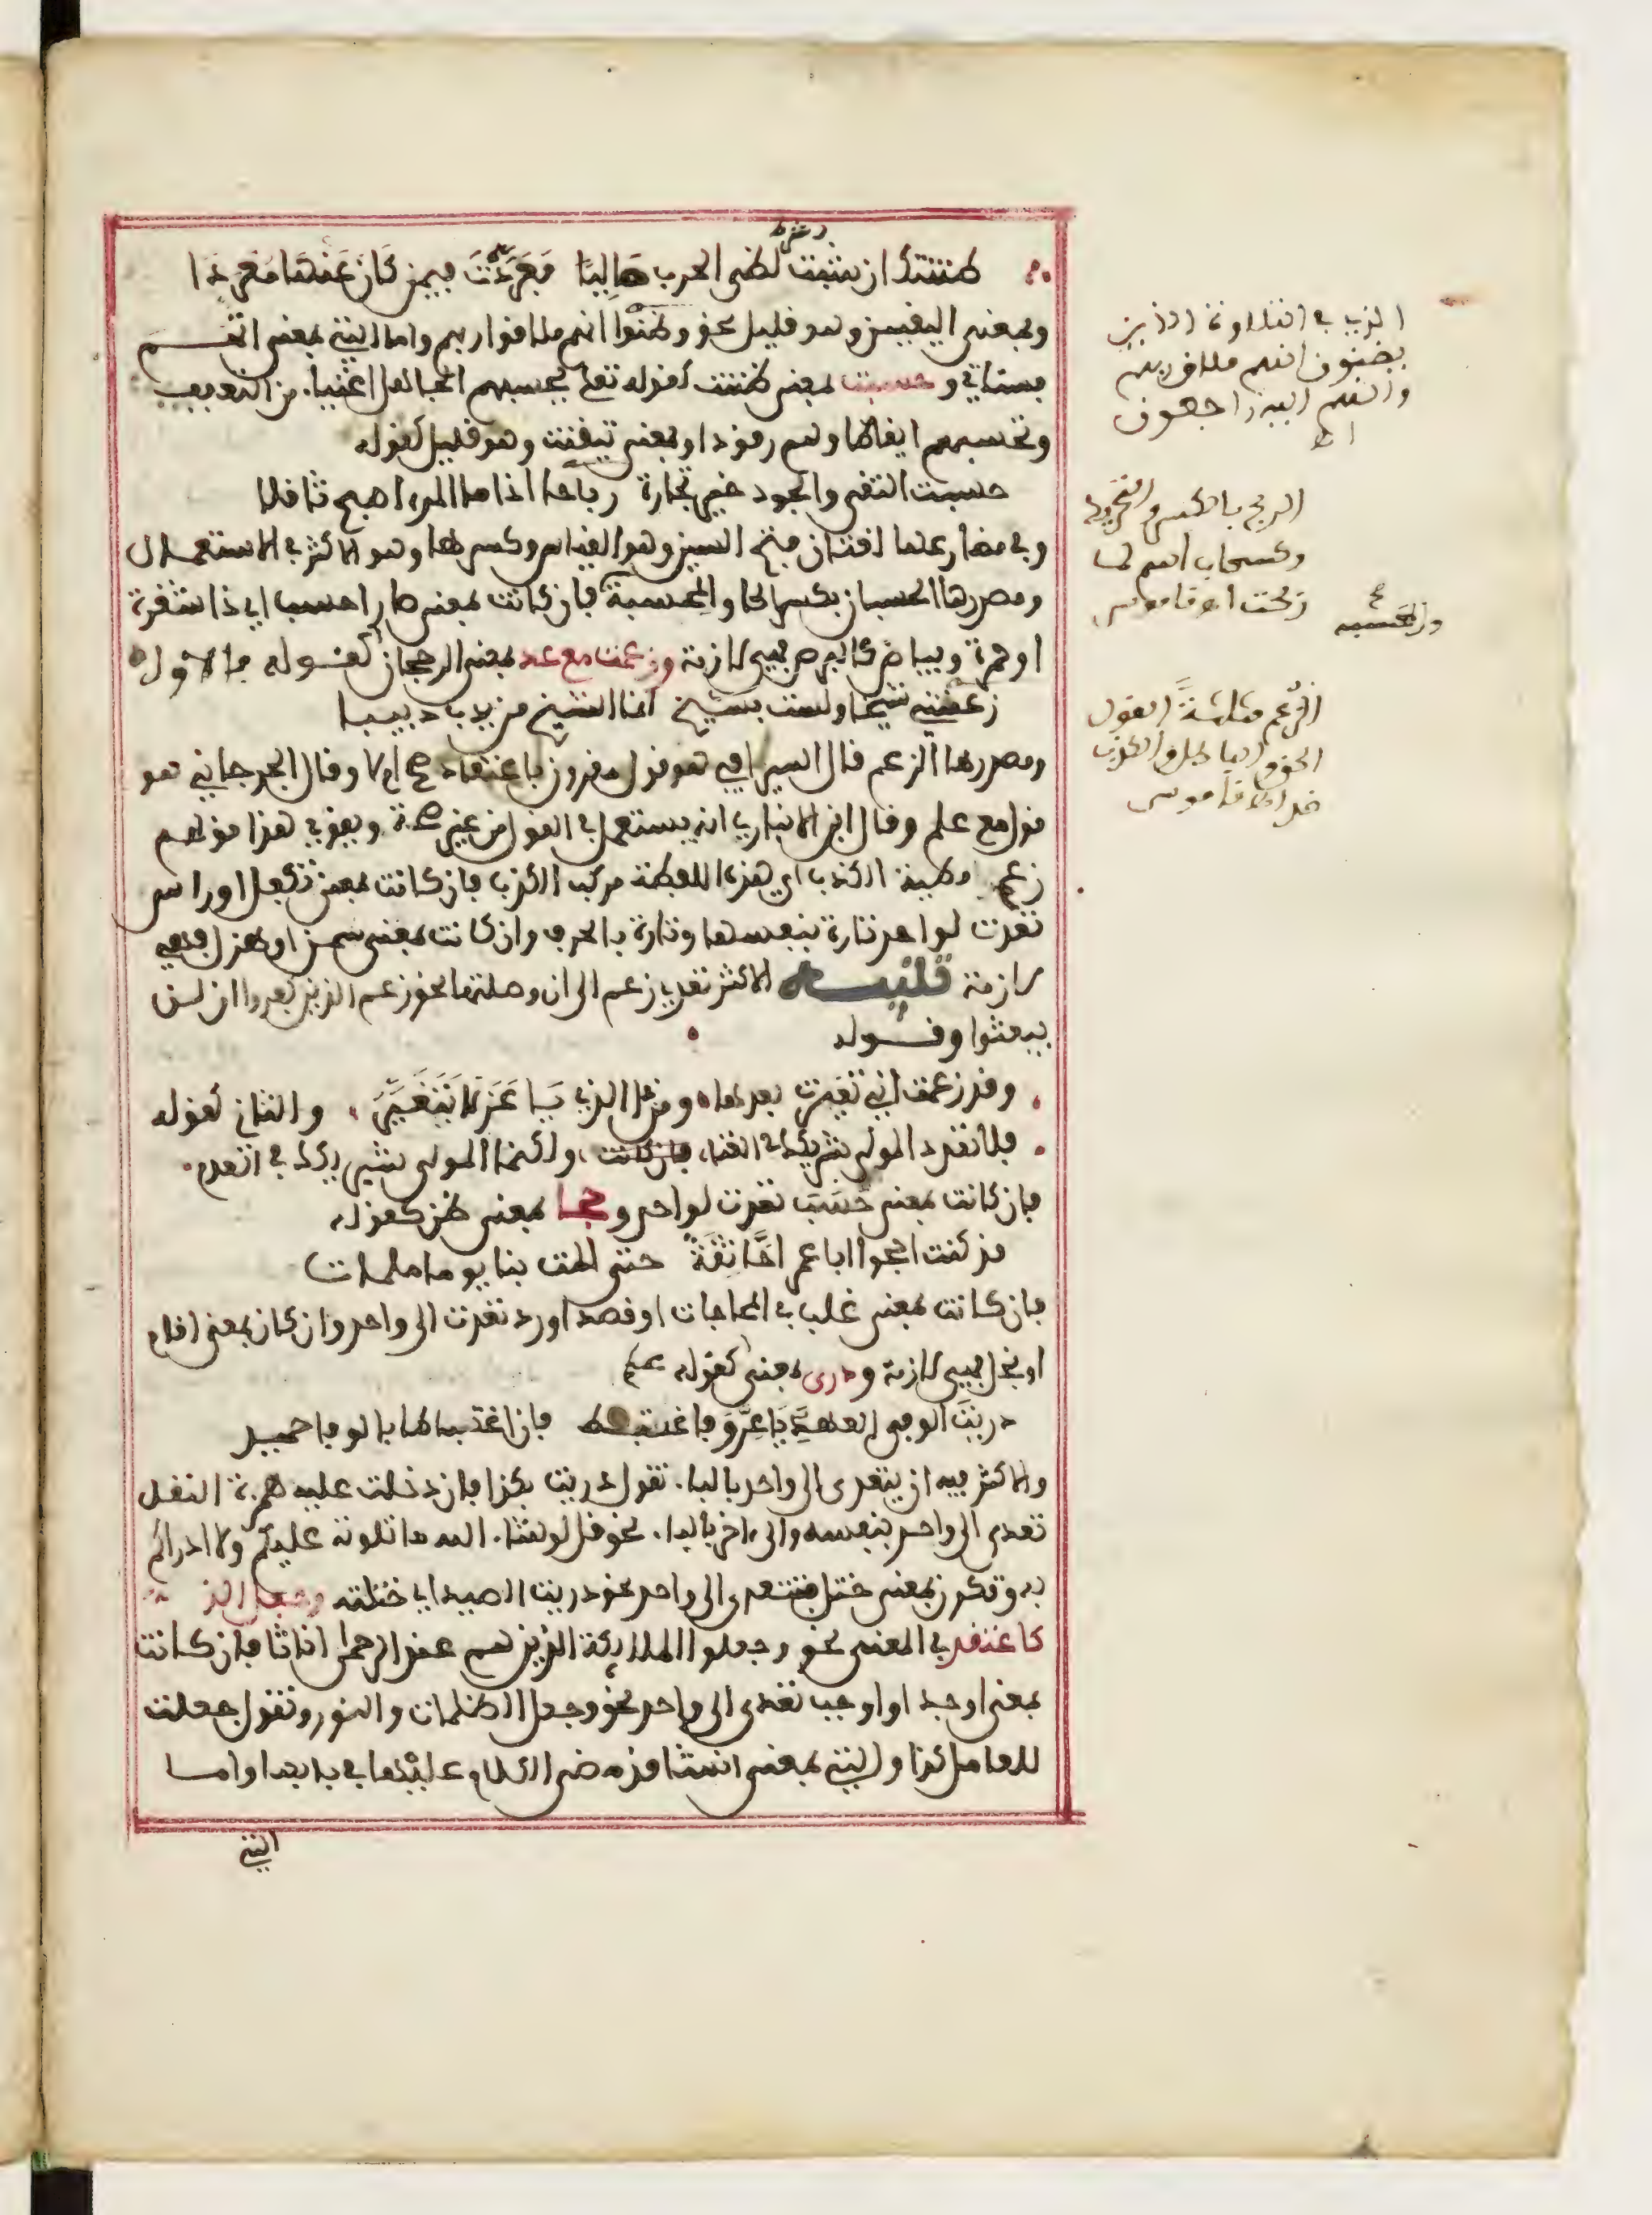 ظننتك ان شبت لظى الحرب صاليا فعردت فيمن كان عنها معردا
وبمعنى اليقين وهو قليل نحو وظنوا انهم ملاقوا ربهم واما التي بمعنى اتهم
فستاتي وحسبت بمعنى ظننت كقوله تعلى يحسبهم الجاهل اغنياء من التعفف
وتحسبهم ايقاظا وهم رقود او بمعنى تيقنت وهو قليل كقوله
حسبت التقى والجود خير تجارة رباحا اذا ما المرء اصبح ثاقلا
وفي مضارعها لغتان فتح السين وهو القياس وكسرها وهو الاكثر في الاستعمال
ومصدرها الحسبان بكسر الحا والمحسبة فان كانت بمعنى صار احسب اي ذا شقرة
او حمرة وبياض كالبرص فهي لازمة وزعمت مع عد بمعنى الرجحان كقوله في الاول
زعمتني شيخا ولست بشيخ انما الشيخ من يدب دبيبا
ومصدرها الزعم قال السيرافي هو قول مقرون باعتقاد صح ام لا وقال الجرجاني هو
قول مع علم وقال ابن الانباري انه يستعمل في القول من غير صحة ويقوي هذا قولهم
زعم مطية الكذب اي هذه اللفظة مركب الكذب فان كانت بمعنى تكفل او راس
تعدت لواحد تارة بنفسها وتارة بالحرف وان كانت بمعنى سمن او هزل فهي
لازمة تنبيه الاكثر تعدي زعم الى ان وصلتها نحو زعم الذين كفروا ان لن
يبعثوا وقوله
وقد زعمت اني تغيرت بعدها ومن ذا الذي يا عز لا يتغير والثاني كقوله
فلا تعدد المولى شريكك في الغنى ولكنما المولى شريكك في العدم
فان كانت بمعنى حسب تعدت لواحد وحجا بمعنى ظن كقوله
قد كنت احجوا ابا عمر اخا ثقة حتى المت بنا يوما ملمات
فان كانت بمعنى غلب في المحاجات او قصد او رد تعدت الى واحد وان كان بمعنى اقام
او بخل فهي لازمة ودرى بمعنى كقوله علم
دريت الوفي العهد يا عرو فاغتبط فان اغتباطا بالوفا حميد
والاكثر فيه ان يتعدى الى واحد بالبا. تقول دريت بكذا فان دخلت عليه همزة النقل
تعدى الى واحد بنفسه والى ءاخر بالبا. نحو قل لو شا. الله ما تلوته عليكم ولا ادراكم
به وتكون بمعنى ختل فتتعدى الى واحد نحو دريت الصيد اي ختلته وجعل الذ
كاعتقد في المعنى نحو وجعلوا الملائكة الذين هم عند الرحمن اناثا فان كانت
بمعنى اوجد او اوجب تعدى الى واحد نحو وجعل الظلمات والنور وتقول جعلت
للعامل كذا والتي بمعنى انشا قد مضى الكلام عليها في بابها واما
التي
الذي في التلاوة الذين
يظنون انهم ملاقو ربهم
وانهم اليه راجعون
اه
الربح بالكسر والتحريك
وكسحاب اسم لما
ربحت اه قاموس
والمحسبه
الزعم مثلثة القول
الحق والباطل والكذب
ضد اه قاموس